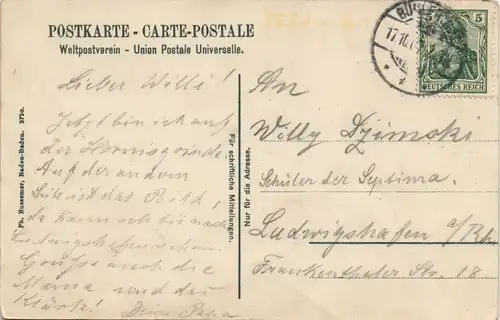 POSTKARTE - CARTE-POSTALE
Weltpostverein - Union Postale Universelle.
BÜHL
17.10.
5
DEUTSCHES REICH
Lieber Willi!
Jetzt bin ich auf
der Hornisgrinde.
Auf der andern
Seite ist das
da kann ich bis nach
Ludwigshafen
Grüße auch die
Mama und das
Dein Papa
Ph. Bussemer, Baden-Baden. 3750.
Für schriftliche Mitteilungen.
Nur für die Adresse.
An
Willy Dzimski
Schüler der Septima.
Ludwigshafen a/Rh
Frankenthaler Str. 18